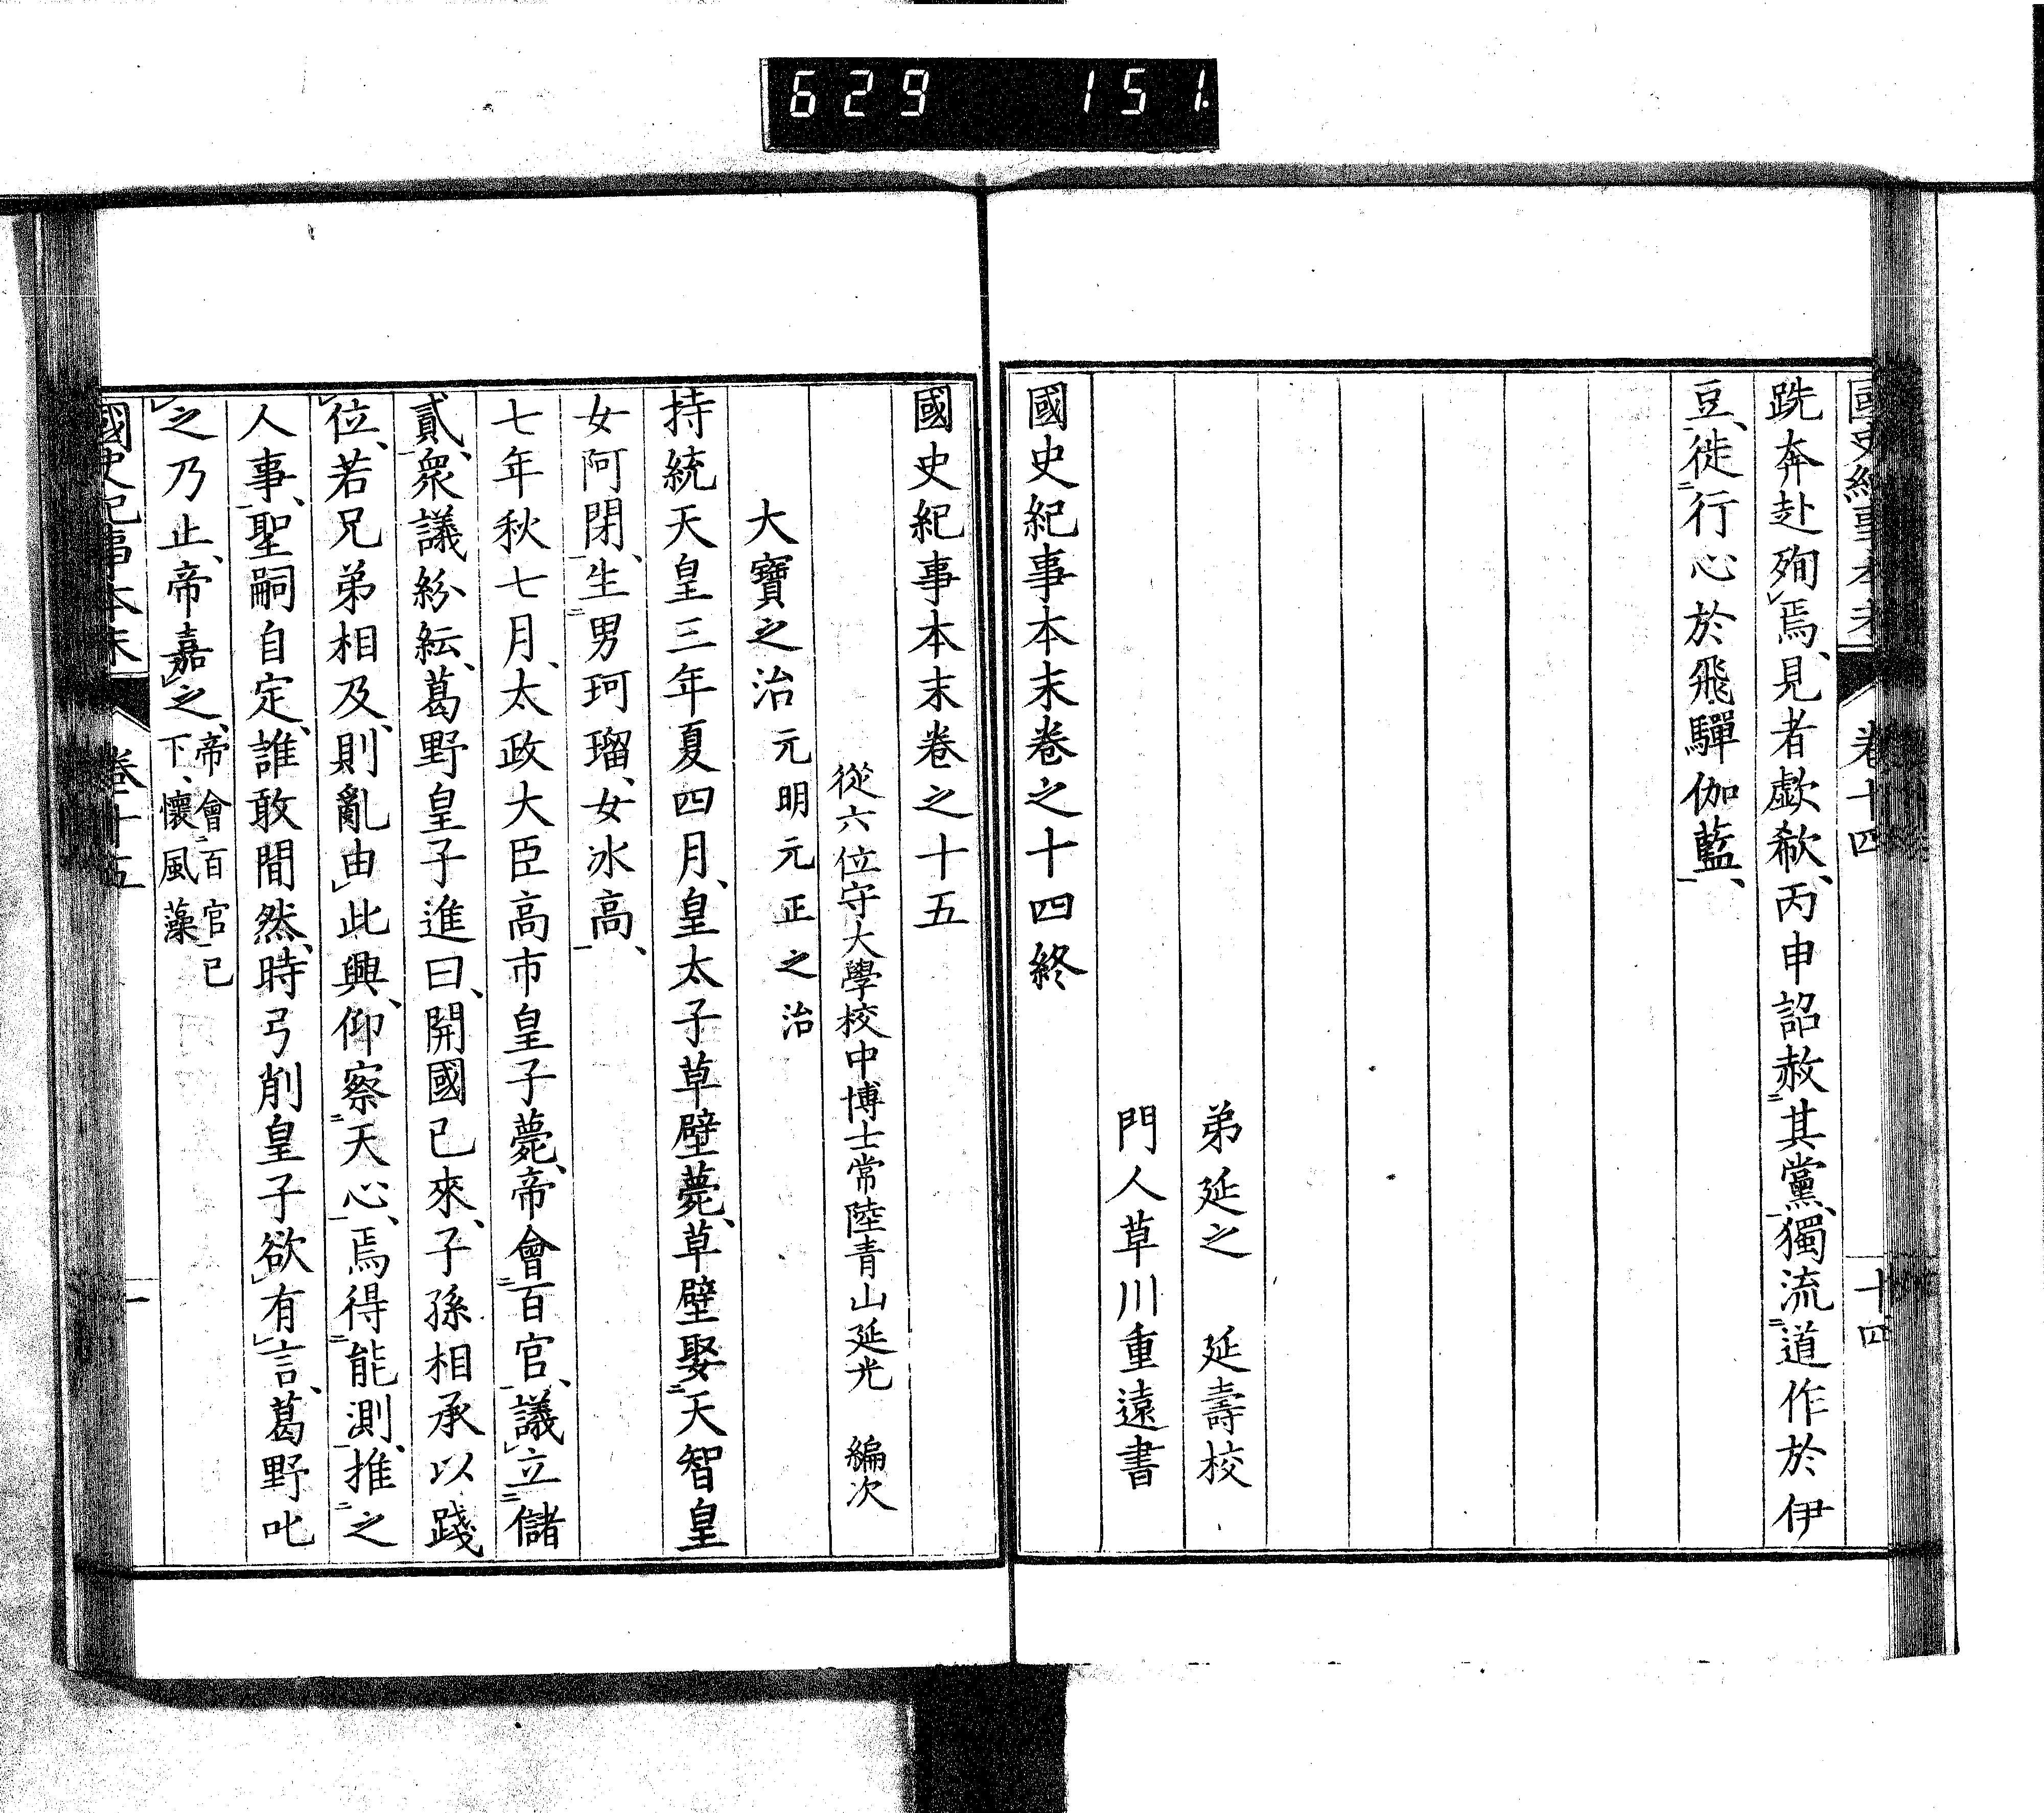 629 151
國史紀事本末 卷十四 十四
跣奔赴殉焉、見者歔欷、丙申詔赦其黨、獨流道作於伊
豆、徙行心於飛驒伽藍、
弟延之 延壽校
門人草川重遠書
國史紀事本末卷之十四終
國史紀事本末卷之十五
從六位守大學校中博士常陸青山延光 編次
大寶之治 元明元正之治
持統天皇三年夏四月、皇太子草壁薨、草壁娶天智皇
女阿閉、生男珂瑠、女冰高、
七年秋七月、太政大臣高市皇子薨、帝會百官、議立儲
貳、衆議紛紜、葛野皇子進曰、開國已來、子孫相承以踐
位、若兄弟相及、則亂由此興、仰察天心、焉得能測、推之
人事、聖嗣自定、誰敢間然、時弓削皇子欲有言、葛野叱
之乃止、帝嘉之、帝會百官已
下、懷風藻
國史紀事本末 卷十五 一